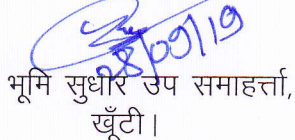 28/09/19
भूमि सुधार उप समाहर्त्ता,
खूँटी।